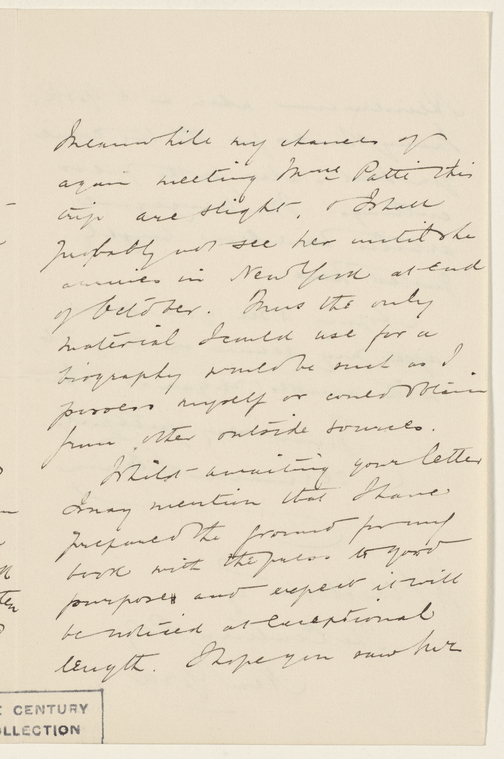 Meanwhile my chances of
again meeting Mme Patti this
trip are slight, & I shall
probably not see her until she
arrives in New York at end
of October. Thus the only
material I could use for a
biography would be such as I
possess myself or could obtain
from other outside sources.
Whilst awaiting your letter
I may mention that I have
prepared the ground for my
book with the press to good
purpose and expect it will
be noticed at exceptional
length. I hope you saw her
E CENTURY
OLLECTION